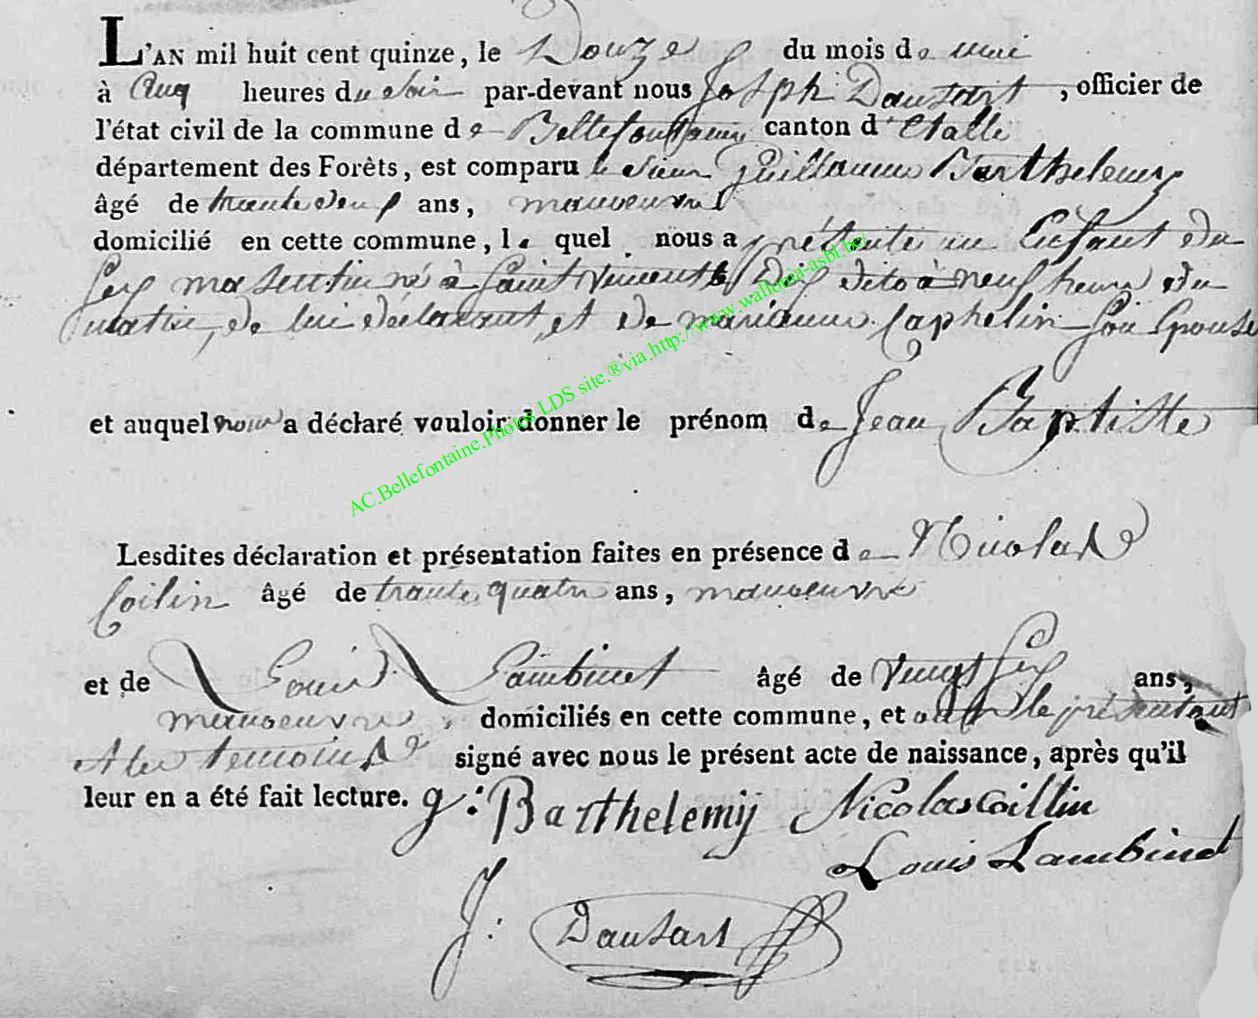 L'AN mil huit cent quinze, le Douze du mois de mai
à Cinq heures du Soir par-devant nous Joseph Dausart, officier de
l'état civil de la commune de Bellefontaine canton d'Etalle
département des Forêts, est comparu le Sieur Guillaume Barthelemy
âgé de trente deux ans, manoeuvre
domicilié en cette commune, lequel nous a présenté un Enfant du
Sex masculin né à Saint Vincent le Dix dito à neuf heures du
matin, de lui déclarant, et de marianne Caphelin Son Epouse
et auquel nous a déclaré vouloir donner le prénom de Jean Baptiste
AC.Bellefontaine.Photos LDS site.®via.http://www.wallonia-asbl.be/
Lesdites déclaration et présentation faites en présence de Nicolas
Coilin âgé de trante quatre ans, manoeuvre
et de Louis Lambinet âgé de Vingt Six ans,
manoeuvre, domiciliés en cette commune, et ont le présentant
et les temoins signé avec nous le présent acte de naissance, après qu'il
leur en a été fait lecture. g: Barthelemij Nicolas Coillin
Louis Lambinet
J: Dausart